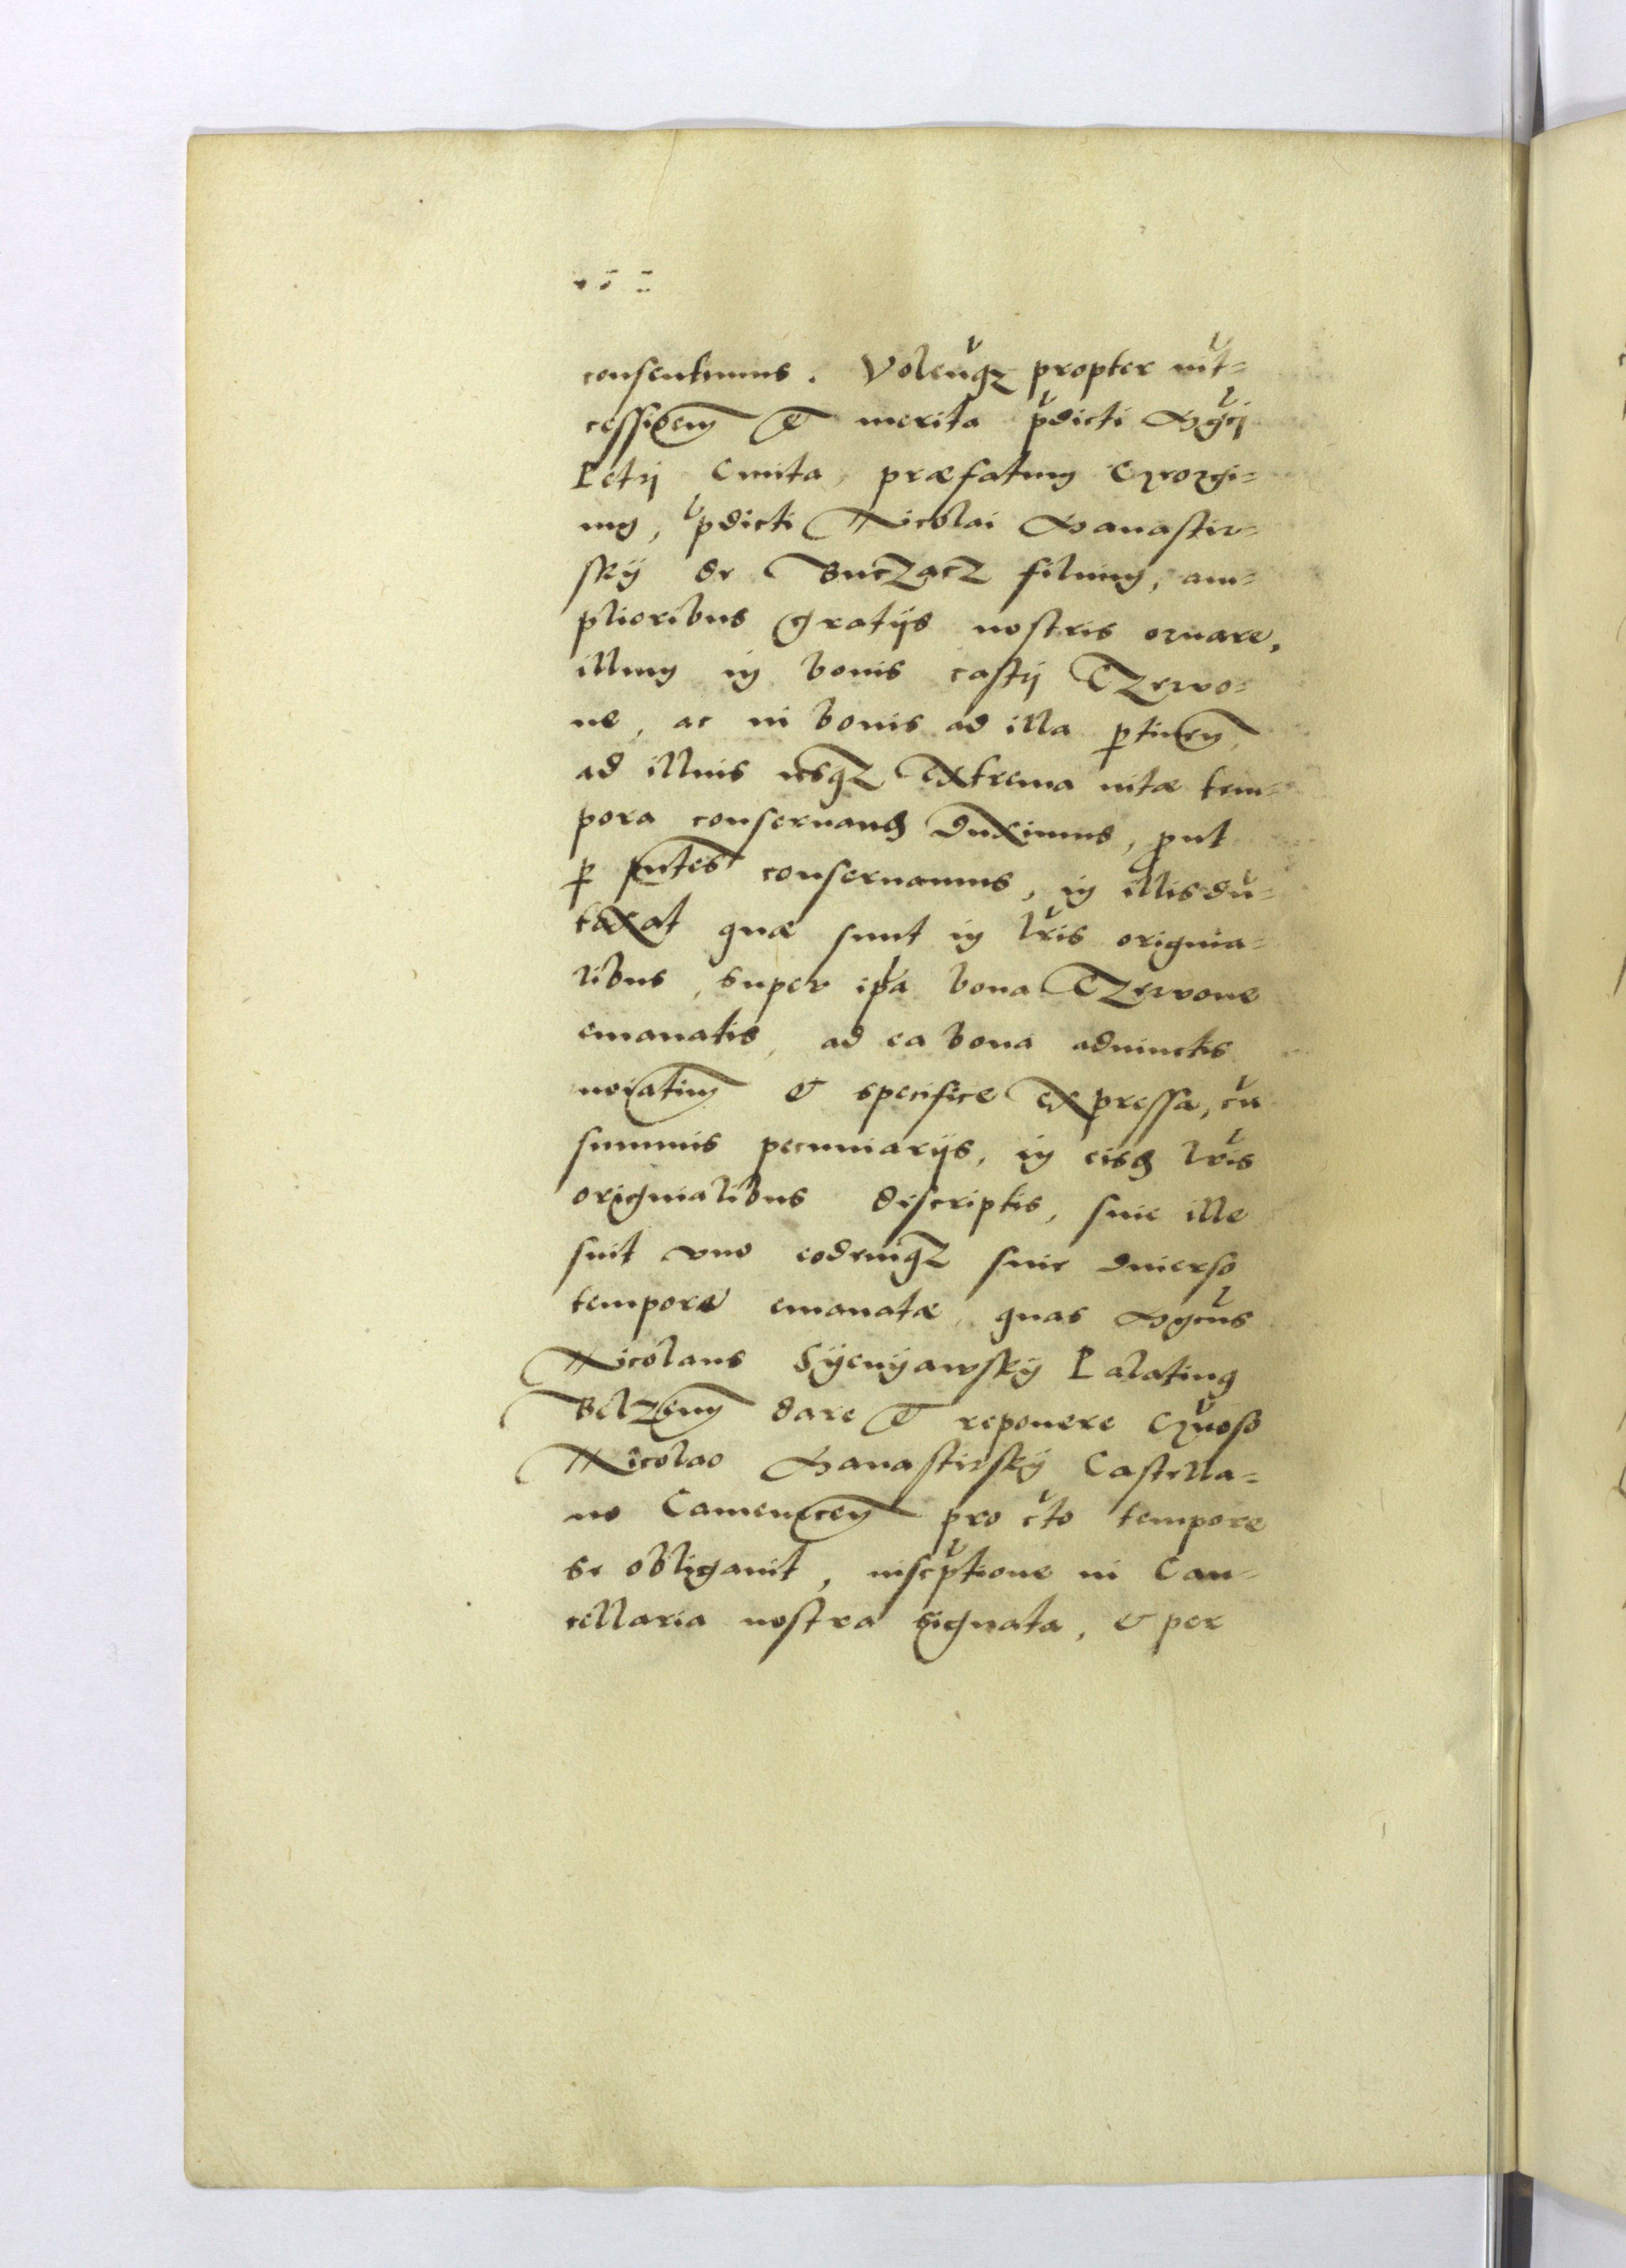 consentimus. Volen̄qȝ propter int̄=
cessionem et merita p̄dicti Mgc̄i
Petri Cmita, præfatum Georgi=
um, p̄dicti Nicolai Manastir=
skÿ de Buczacz filium, am=
plioribus gratijs nostris ornare,
illum in bonis castri Czerwo=
ne, ac in bonis ad illa ꝑtinen
ad illius usqȝ extrema vitæ tem=
pora conseruand duximus, ꝓut
ꝑ p̄ntes conseruamus, in illis dū=
taxat quæ sunt in lr̄is origina=
libus, super ip̄a bona Czerwone
emanatis, ad ea bona adiunctis
noīatim & specifice expressa, cū
summis pecuniarijs, in eisd lr̄is
originalibus descriptis, siue ille
sint vno eodemqȝ siue diuerso
tempore emanatæ, quas Mgcūs
Nicolaus Syenÿawskÿ Palatinus
Belzen dare et reponere Gn̄oso
Nicolao Manastirskÿ Castella=
no Camenecen pro cr̄to tempore
se obligauit, inscp̄tione in Can=
cellaria nostra signata, & per